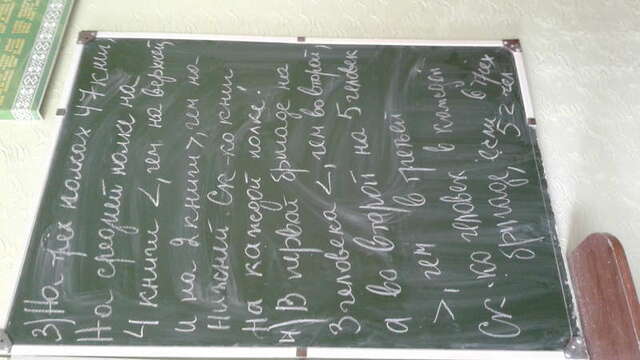 3) На трёх полках 47 книг,
На средней полке на
4 книги <, чем на верхней,
и на 2 книги >, чем на
нижней. Ск-ко книг
на каждой полке?
4) В первой бригаде на
3 человека <, чем во второй,
а во второй на 5 человек
>, чем в третьей
Ск-ко человек в каждой
бригаде, если в них
52 чел